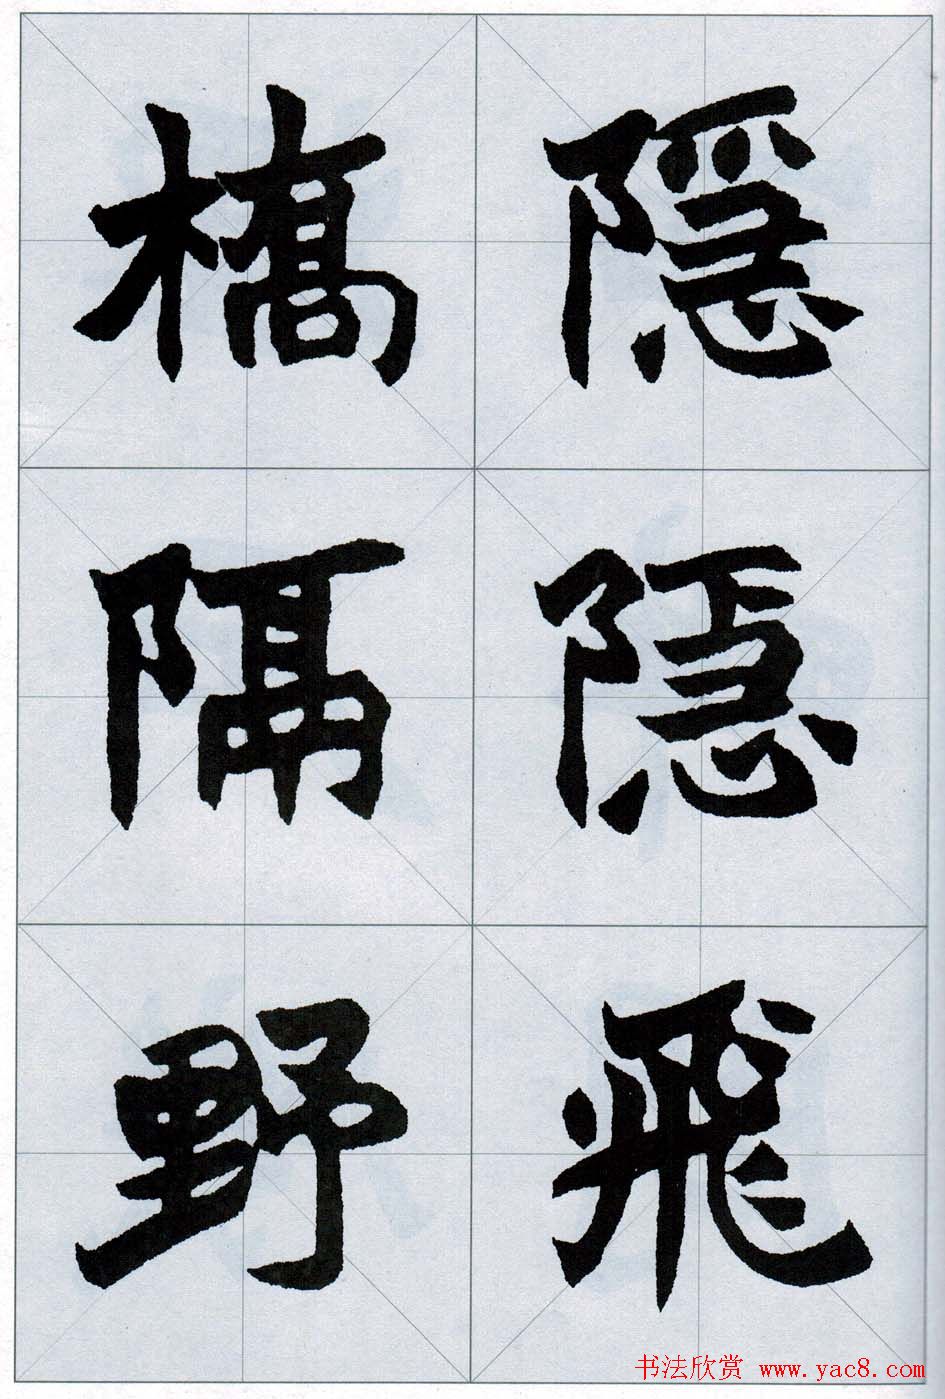 隱隱飛
橋隔野
书法欣赏 www.yac8.com